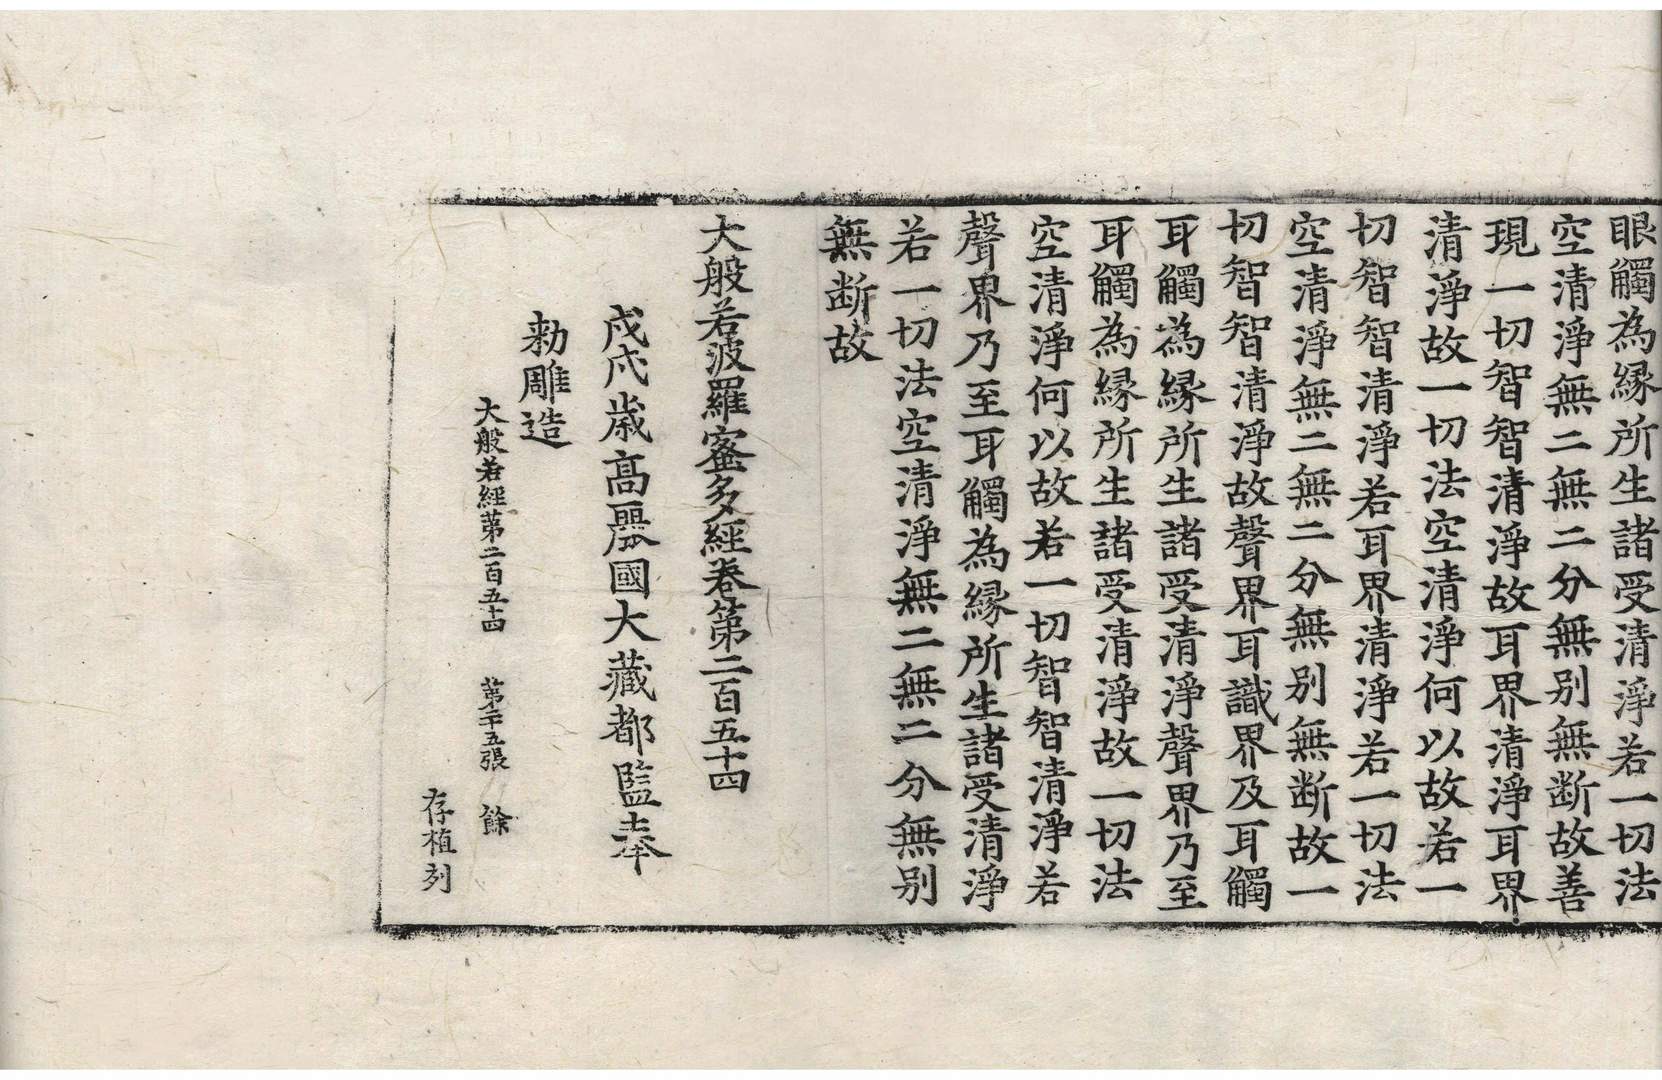 眼觸為緣所生諸受清淨若一切法
空清淨無二無二分無別無断故善
現一切智智清淨故耳界清淨耳界
清淨故一切法空清淨何以故若一
切智智清淨若耳界清淨若一切法
空清淨無二無二分無別無断故一
切智智清淨故聲界耳識界及耳觸
耳觸為緣所生諸受清淨聲界乃至
耳觸為緣所生諸受清淨故一切法
空清淨何以故若一切智智清淨若
聲界乃至耳觸為緣所生諸受清淨
若一切法空清淨無二無二分無別
無断故
大般若波羅蜜多經卷第二百五十四
戊戌歲高麗國大藏都監奉
勅雕造
大般若經第二百五十四 第二十五張 餘
存植列